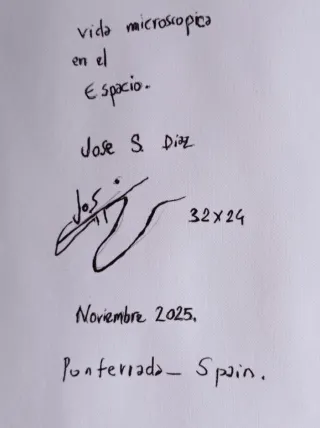 vida microscopica
en el
Espacio.
Jose S. Diaz
Jos
32x24
Noviembre 2025.
Ponferrada_ Spain.